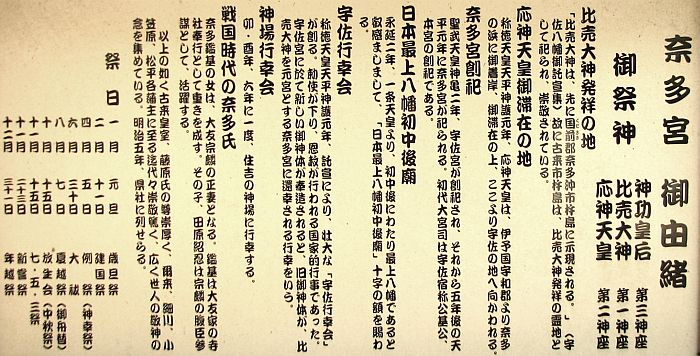 奈多宮 御由緒
御祭神
神功皇后 第三神座
比売大神 第一神座
応神天皇 第二神座
比売大神発祥の地
「比売大神は、先に国前郡奈多沖市杵島に示現される。」（宇
佐八幡御託宣集）故に古来市杵島は、比売大神発祥の霊地と
して祀られ、崇敬されている。
応神天皇御滞在の地
称徳天皇天平神護元年、応神天皇は、伊予国宇和郡より奈多
の浜に御着岸、御滞在の上、ここより宇佐の地へ向かわれる。
奈多宮創祀
聖武天皇神亀二年、宇佐宮が創祀され、それから五年後の天
平元年に奈多宮が祀られる。初代大宮司は宇佐宿称公基公、
本宮の創祀である。
日本最上八幡初中後廟
永延二年、一条天皇より、初中後にわたり最上八幡であると
叡感ましまして、「日本最上八幡初中後廟」十字の額を賜わ
る。
宇佐行幸会
称徳天皇天平神護元年、託宣により、壮大な「宇佐行幸会」
が創る。勅使が下り、恩赦が行われる国家的行事であった。
宇佐宮に於て新しい御神体が奉造されると、旧御神体が、比
売大神を元宮とする奈多宮に還幸される行幸をいう。
神場行幸会
卯・酉年、六年に一度 住吉の神場に行幸する。
戦国時代の奈多氏
奈多鑑基の女は、大友宗麟の正妻となる。鑑基は大友家の寺
社奉行として重きを成す。その子、田原紹忍は宗麟の腹臣参
謀として、活躍する。
以上の如く古来皇室、藤原氏の尊崇厚く、爾来、細川、小
笠原、松平各藩主に至る迄代々崇敬篤く、広く世人の敬神の
念を集めている。明治五年、県社に列せらる。
祭日
一月 元旦 歳旦祭
二月 十一日 建国祭
四月 五日 例祭（神幸祭）
六月 三十日 大祓
八月 七日 夏越祭（御舟替）
十月 十五日 放生会（中秋祭）
十一月 十五日 七・五・三祭
十一月 二十三日 新嘗祭
十二月 三十一日 年越祭